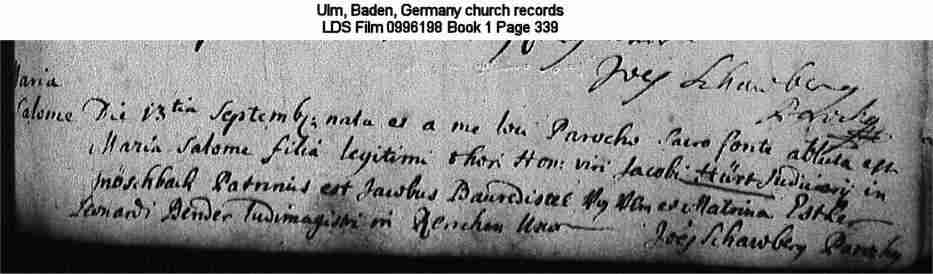 Ulm, Baden, Germany church records
LDS Film 0996198 Book 1 Page 339
Joes Schawberg
Maria
Salome
Die 13tia Septemb: nata et a me loci Parocho Sacro fonte abluta est
Maria Salome filia legitimi thori Hon: viri Jacobi Hürt in
möschbach Patrinus est Jacobus et Matrina
Leonardi Bender Ludimagistri in Renchen Uxor Joes Schawberg Parochus